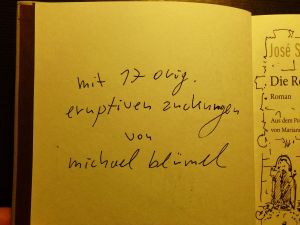 mit 17 orig.
eruptiven zuckungen
von
michael blümel
José S
Die Re
Roman
Aus dem Po
von Marian